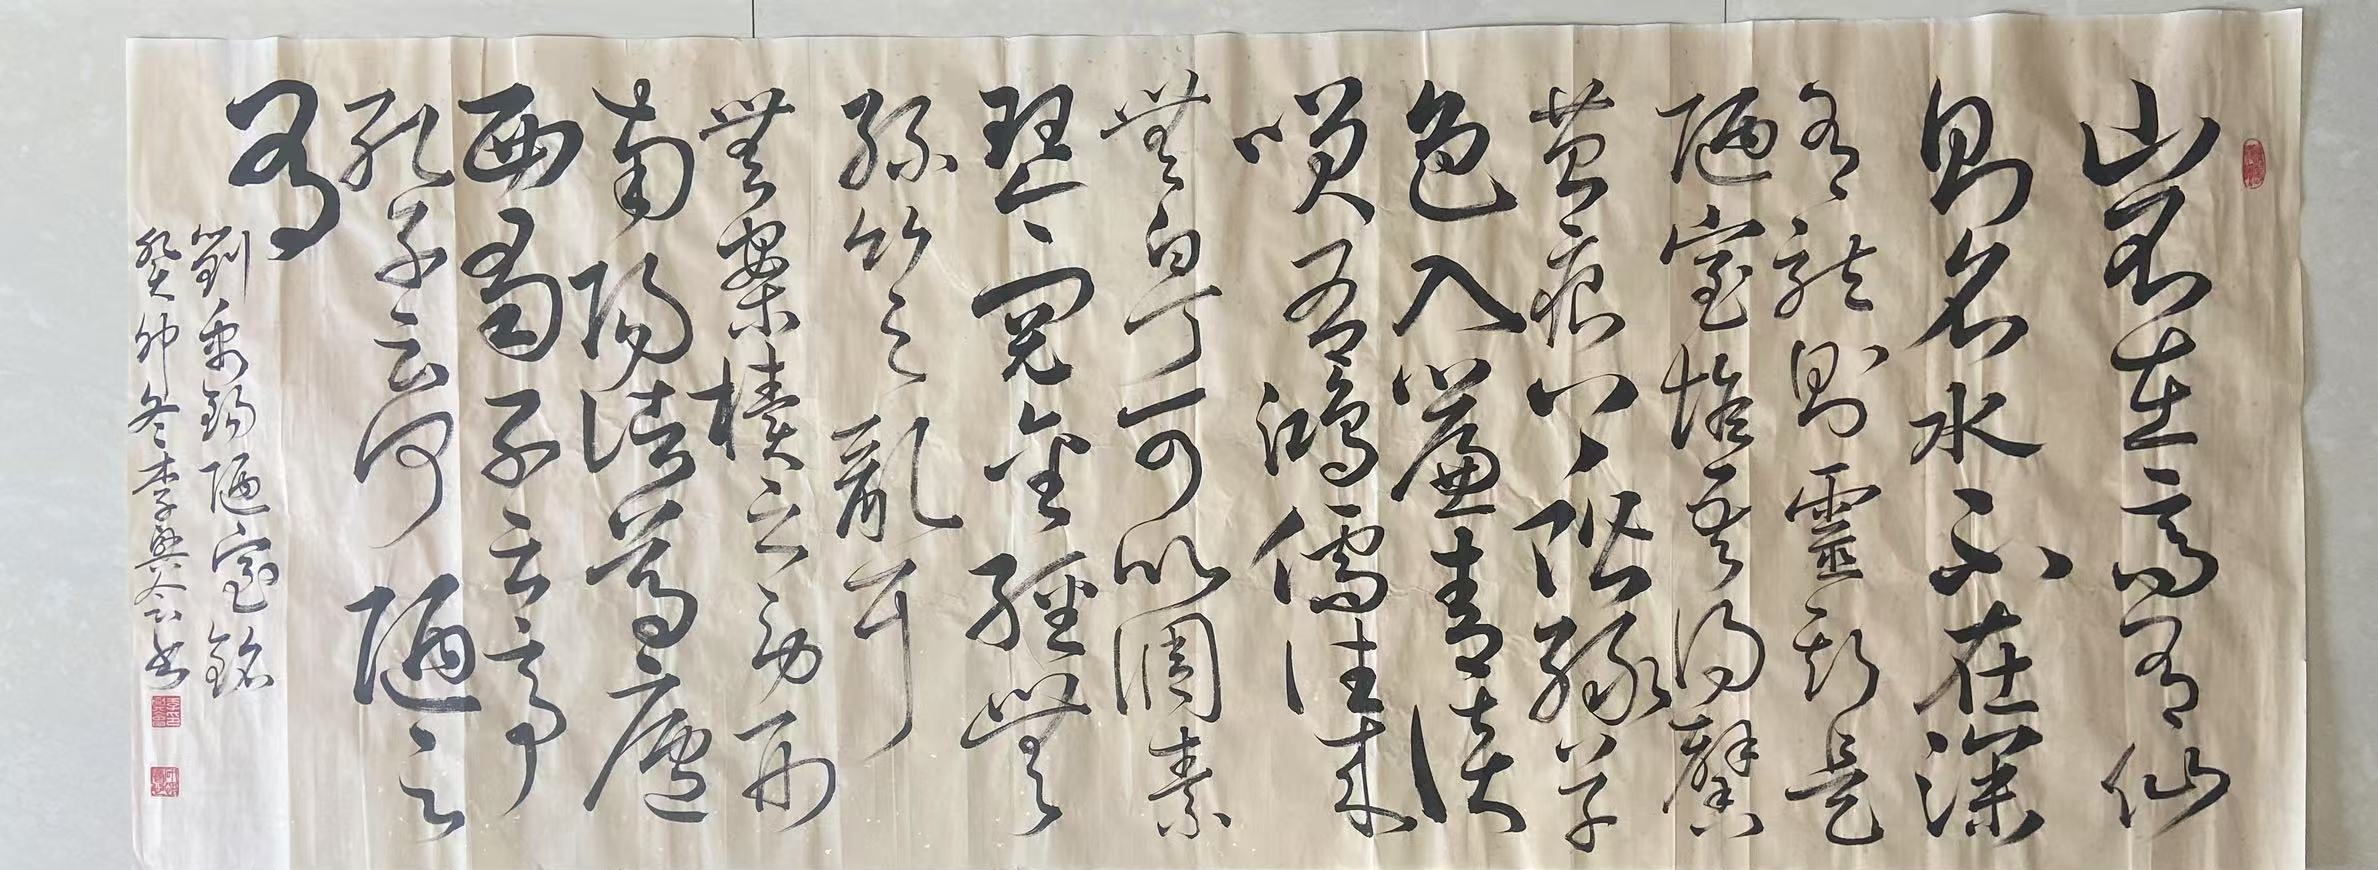 山不在高有仙
則名水不在深
有龍則靈斯是
陋室惟吾得馨
苔痕上階緑草
色入簾青談
笑有鴻儒往来
無白丁可以調素
琴閲金經無
絲竹之亂耳
無案牘之勞形
南陽諸葛廬
西蜀子云亭
孔子云何陋之
有
劉禹錫陋室銘
癸卯冬李興会书